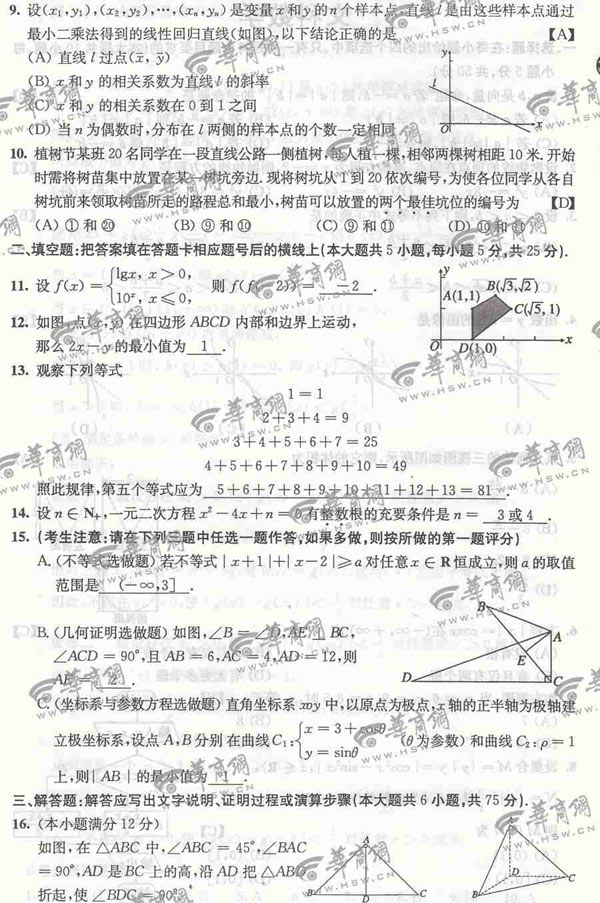 9. 设(x₁,y₁),(x₂,y₂),…,(xₙ,yₙ)是变量 x 和 y 的 n 个样本点,直线 l 是由这些样本点通过
最小二乘法得到的线性回归直线(如图),以下结论正确的是 【A】
(A) 直线 l 过点(x̄, ȳ)
(B) x 和 y 的相关系数为直线 l 的斜率
(C) x 和 y 的相关系数在 0 到 1 之间
(D) 当 n 为偶数时,分布在 l 两侧的样本点的个数一定相同
y
l
O
x
10. 植树节某班 20 名同学在一段直线公路一侧植树,每人植一棵,相邻两棵树相距 10 米.开始
时需将树苗集中放置在某一树坑旁边.现将树坑从 1 到 20 依次编号,为使各位同学从各自
树坑前来领取树苗所走的路程总和最小,树苗可以放置的两个最佳坑位的编号为 【D】
(A) ①和⑳ (B) ⑨和⑩ (C) ⑨和⑪ (D) ⑩和⑪
二、填空题:把答案填在答题卡相应题号后的横线上(本大题共 5 小题,每小题 5 分,共 25 分).
11. 设 f(x) = { lgx, x > 0,
10ˣ, x ⩽ 0, 则 f(f(-2)) = -2 .
12. 如图,点(x,y)在四边形 ABCD 内部和边界上运动,
那么 2x - y 的最小值为 1 .
y
A(1,1)
B(√3,√2)
C(√5,1)
O
D(1,0)
x
13. 观察下列等式
1 = 1
2+3+4 = 9
3+4+5+6+7 = 25
4+5+6+7+8+9+10 = 49
照此规律,第五个等式应为 5+6+7+8+9+10+11+12+13 = 81 .
14. 设 n ∈ N₊,一元二次方程 x² - 4x + n = 0 有整数根的充要条件是 n = 3 或 4 .
15. (考生注意:请在下列三题中任选一题作答,如果多做,则按所做的第一题评分)
A. (不等式选做题) 若不等式 | x + 1 | + | x - 2 | ⩾ a 对任意 x ∈ R 恒成立,则 a 的取值
范围是 (-∞,3] .
B. (几何证明选做题) 如图,∠B = ∠D,AE ⊥ BC,
∠ACD = 90°,且 AB = 6,AC = 4,AD = 12,则
AE = 2 .
B
A
E
D
C
C. (坐标系与参数方程选做题) 直角坐标系 xoy 中,以原点为极点,x 轴的正半轴为极轴建
立极坐标系,设点 A,B 分别在曲线 C₁: { x = 3 + cosθ
y = sinθ (θ 为参数) 和曲线 C₂: ρ = 1
上,则 | AB | 的最小值为 1 .
三、解答题:解答应写出文字说明、证明过程或演算步骤(本大题共 6 小题,共 75 分).
16. (本小题满分 12 分)
如图,在 △ABC 中,∠ABC = 45°,∠BAC
= 90°,AD 是 BC 上的高,沿 AD 把 △ABD
折起,使 ∠BDC = 90°.
A
B
D
C
D
B
C
華商網
WWW.HSW.CN